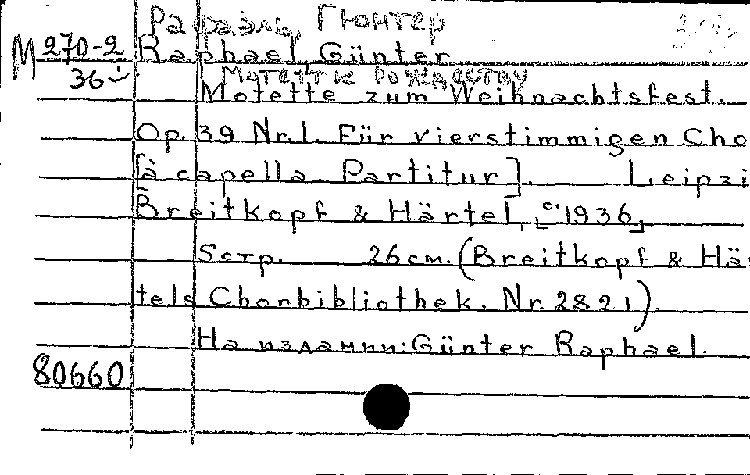 Рафаэль, Гюнтер
М 270-2
Raphael, Günter
36
Мотетты к рождеству
Motette zum Weihnachtsfest.
Op. 39 Nr.1. Für vierstimmigen Cho
[à capella. Partitur]. Leipzi
Breitkopf & Härtel, [c. 1936]
5стр. 26 см. (Breitkopf & Hä
tels Chorbibliothek. Nr. 2821)
На издании: Günter Raphael.
80660